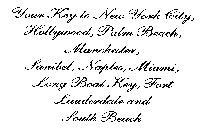 Your Key to New York City,
Hollywood, Palm Beach,
Manchester,
Sanibel, Naples, Miami,
Long Boat Key, Fort
Lauderdale and
South Beach